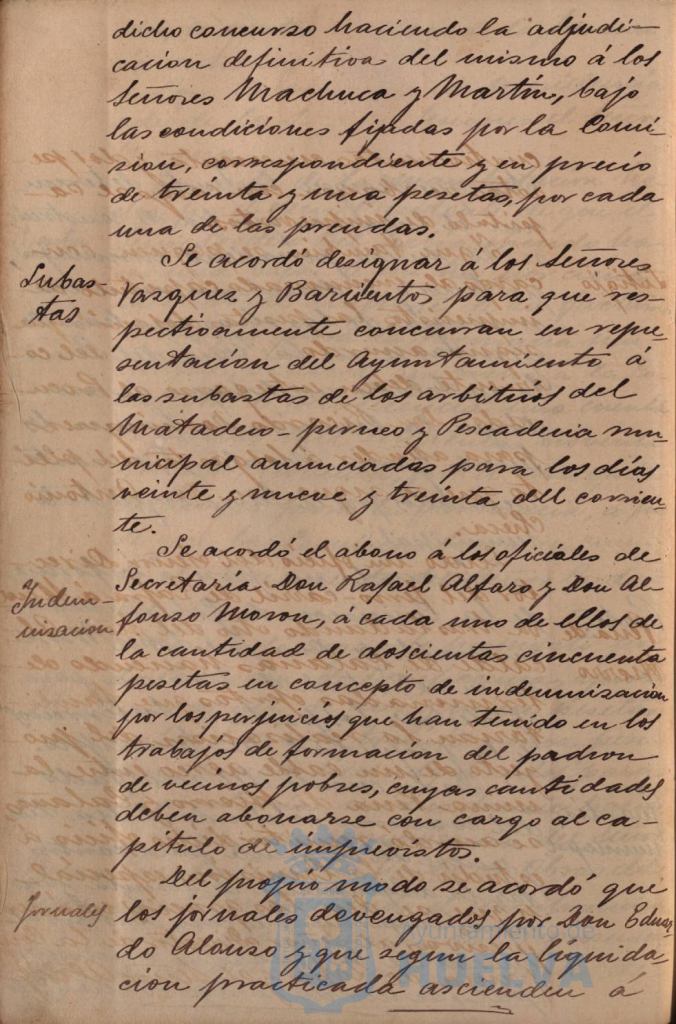 dicho concurso haciendo la adjudi-
cacion definitiva del mismo á los
Señores Machuca y Martín, bajo
las condiciones fijadas por la Comi-
sion, correspondiente y en precio
de treinta y una pesetas, por cada
una de las prendas.
Subas-
tas
Se acordó designar á los Señores
Vazquez y Barrientos para que res-
pectivamente concurran en repre-
sentacion del Ayuntamiento á
las subastas de los arbitrios del
Matadero - perneo y Pescaderia mu-
nicipal anunciadas para los días
veinte y nueve y treinta del corrien-
te.
Indem-
nizacion
Se acordó el abono á los oficiales de
Secretaría Don Rafael Alfaro y Don Al-
fonzo Moron, á cada uno de ellos de
la cantidad de doscientas cincuenta
pesetas en concepto de indemnizacion
por los perjuicios que han tenido en los
trabajos de formacion del padron
de vecinos pobres, cuyas cantidades
deben abonarse con cargo al ca-
pitulo de imprevistos.
Jornales
Del propio modo se acordó que
los jornales devengados por Don Eduar-
do Alonso y que segun la líquida-
cion practicada ascienden á
Ayuntamiento de
HUELVA